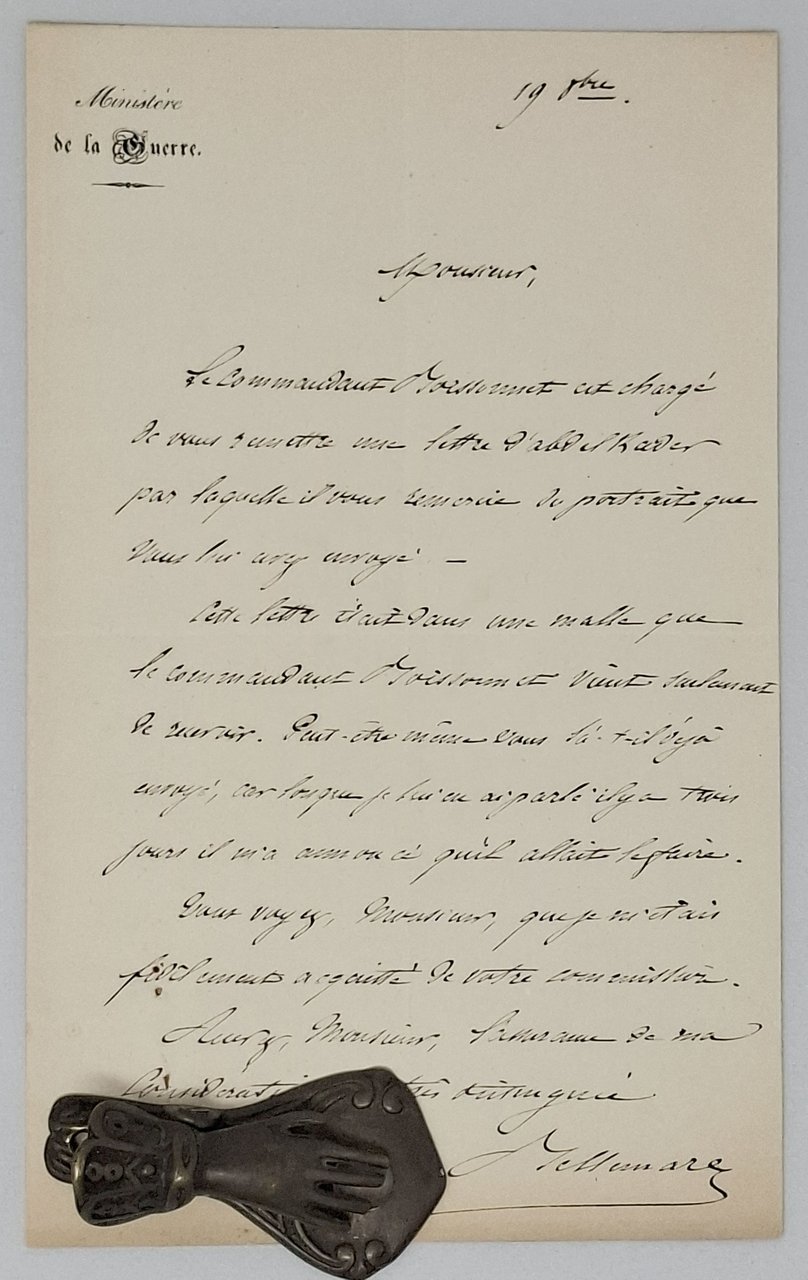 Ministère
de la Guerre.
19 8bre.
Monsieur,
Le Commandant Boissonnet est chargé
de vous remettre une lettre d'abdel Kader
par laquelle il vous remercie du portrait que
Vous lui avez envoyé. —
Cette lettre était dans une malle que
le commandant Boissonnet vient seulement
de recevoir. Peut-être même vous l'a-t-il déjà
envoyé, car lorsque je lui en ai parlé il y a trois
jours il m'a annoncé qu'il allait le faire.
Vous voyez, Monsieur, que je m'étais
fidèlement acquitté de votre commission.
Agréez, Monsieur, l'assurance de ma
considérati très distinguée
Bellemare